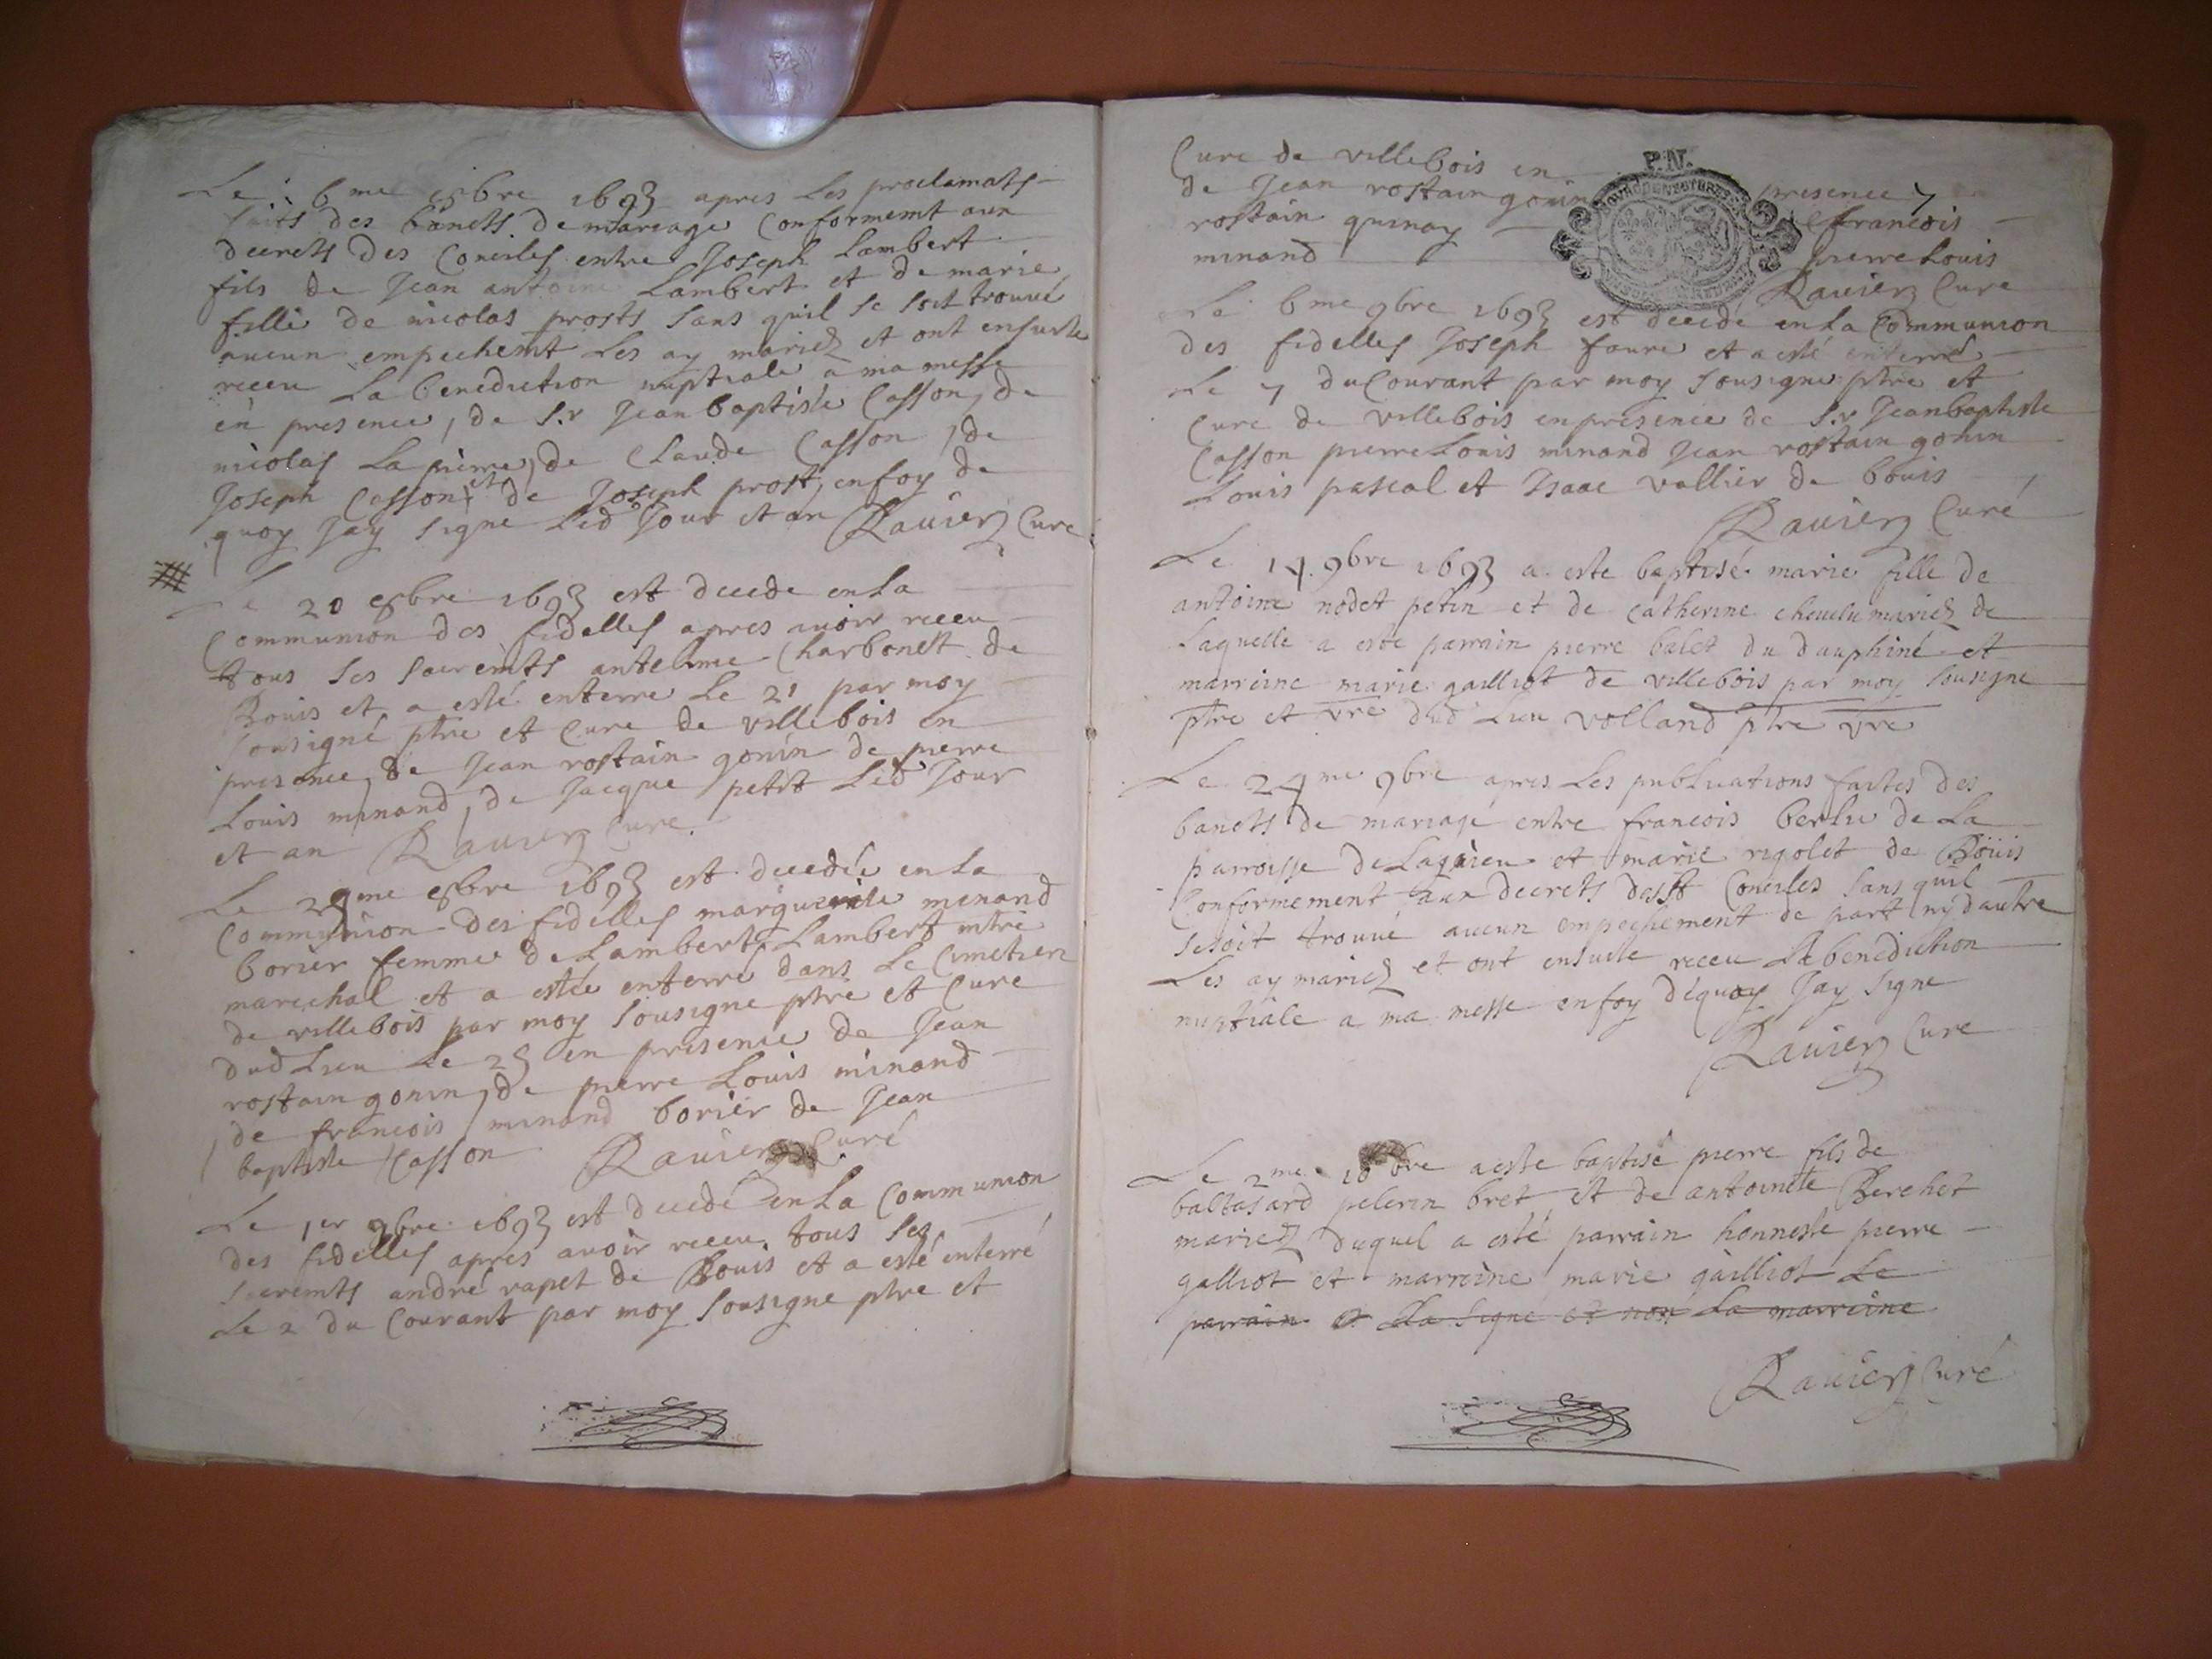 Le 6me 8bre 1693 apres les proclamats
faits des bancts de mariage Conformemt aux
decrets des Conciles entre Joseph Lambert
fils de Jean antoine Lambert et de marie
fille de nicolas prosts sans quil se soit trouué
aucun empechemt les ay mariez et ont ensuite
receu La benediction nuptiale a ma messe
en presence, de S.r Jean baptiste Casson, de
nicolas La pierre, de Claude Casson, de
Joseph Casson et de Joseph prost, en foy de
quoy Jay signe Led Jour et an Rauier Cure
Le 20 8bre 1693 est decede en La
Communion des fidelles apres auoir receu
tous ses sacremts antelme Charbonet de
Bouis et a esté enterre Le 21 par moy
sousigné ptre et Cure de villebois en
presence, de Jean rostain gonin de pierre
Louis minand, de Jacque petit Led Jour
et an Rauier Cure.
Le me 8bre 1693 est decedée en La
Communion des fidelles marguerite minand
borier femme de Lambert Lambert mtre
marechal et a estée enterré dans Le Cimetier
de villebois par moy sousigne ptre et Cure
dud Lieu Le en presence de Jean
rostain gonin, de pierre Louis minand
, de francois minand borier de Jean
baptiste Casson Rauier Curé
Le 1er 9bre 1693 est decedé en La Communion
des fidelles apres auoir receu tous ses
sacremts andré rapet de Bouis et a esté enterré
Le 2 du Courant par moy sousigne ptre et
P.N.
Cure de villebois en presence
de Jean rostain gonin francois
rostain quinay pierre Louis
minand Rauier Cure
Le 6me 9bre 1693 est decedé en La Communion
des fidelles Joseph foure et a esté enterré
Le 7 du Courant par moy sousigne ptre et
Cure de villebois en presence de S.r Jean baptiste
Casson pierre Louis minand Jean rostain gonin
Louis pascal et Isaac vallier de bouis
Rauier Curé
Le 14. 9bre 1693 a este baptisé marie fille de
antoine nodet petin et de catherine cheuelu mariez de
Laquelle a este parrain pierre balet du dauphiné et
marreine marie gailliot de villebois par moy sousigne
ptre et vre dud Lieu volland ptre vre
Le 24me 9bre apres Les publications faites des
bancts de mariage entre francois berlie de La
parroisse de Lagnieu et marie rigolet de Boüis
Conformement aux decrets des st Conciles sans quil
se soit trouué aucun empechement de part ny dautre
Les ay mariez et ont ensuite receu La benediction
nuptiale a ma messe en foy dequoy Jay signe
Rauier Cure
Le 2me 10bre a este baptisé pierre fils de
baltasard pelerin bret et de antoinete Berchet
mariez duquel a esté parrain honneste pierre
galliot et marreine marie gailliot Le
parrain a signe et non La marreine
Rauier Curé